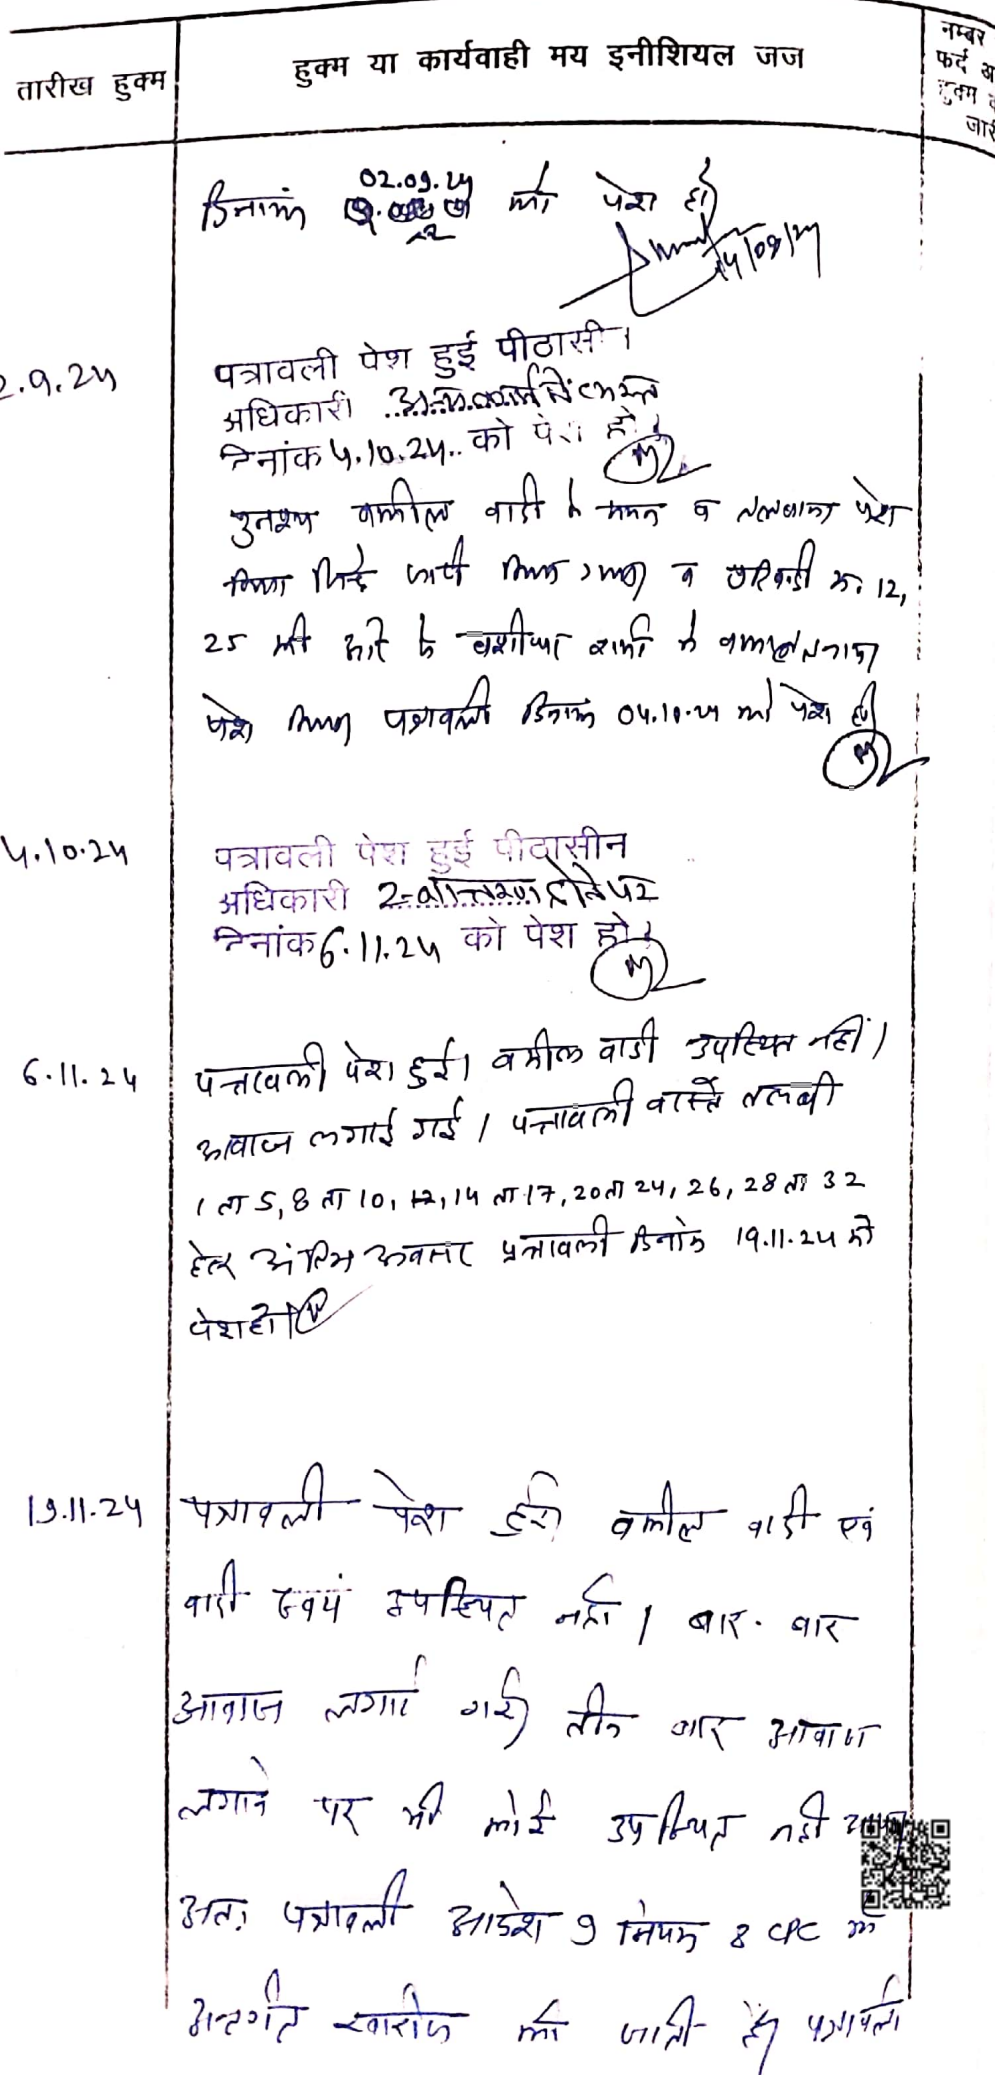 तारीख हुक्म
हुक्म या कार्यवाही मय इनीशियल जज
नम्बर
फर्द अ
हुक्म
जारी
02.09.24
दिनांक को पेश हो
2.9.24
पत्रावली पेश हुई पीठासी।
अधिकारी
दिनांक 4.10.24.. को पेश हो।
पुनश्च वकील वादी ने समन व तलबाना पेश
किया जिन्हें जारी किया गया व प्रतिवादी सं. 12,
25 की ओर से शर्मा ने वकालतनामा
पेश किया पत्रावली दिनांक 04.10.24 को पेश हो
4.10.24
पत्रावली पेश हुई पीठासीन
अधिकारी स्थानान्तरण होने पर
दिनांक 6.11.24 को पेश हो।
6.11.24
पत्रावली पेश हुई। वकील वादी उपस्थित नहीं।
आवाज लगाई गई। पत्रावली वास्ते तलबी
1 ता 5, 8 ता 10, 12, 14 ता 17, 20 ता 24, 26, 28 ता 32
हेतु अंतिम अवसर पत्रावली दिनांक 19.11.24 को
पेश हो।
19.11.24
पत्रावली पेश हुई। वकील वादी एवं
वादी स्वयं उपस्थित नहीं। बार-बार
आवाज लगाई गई। तीन बार आवाज
लगाने पर भी कोई उपस्थित नहीं
अतः पत्रावली आदेश 9 नियम 8 CPC के
अन्तर्गत खारीज की जाती है। पत्रावली